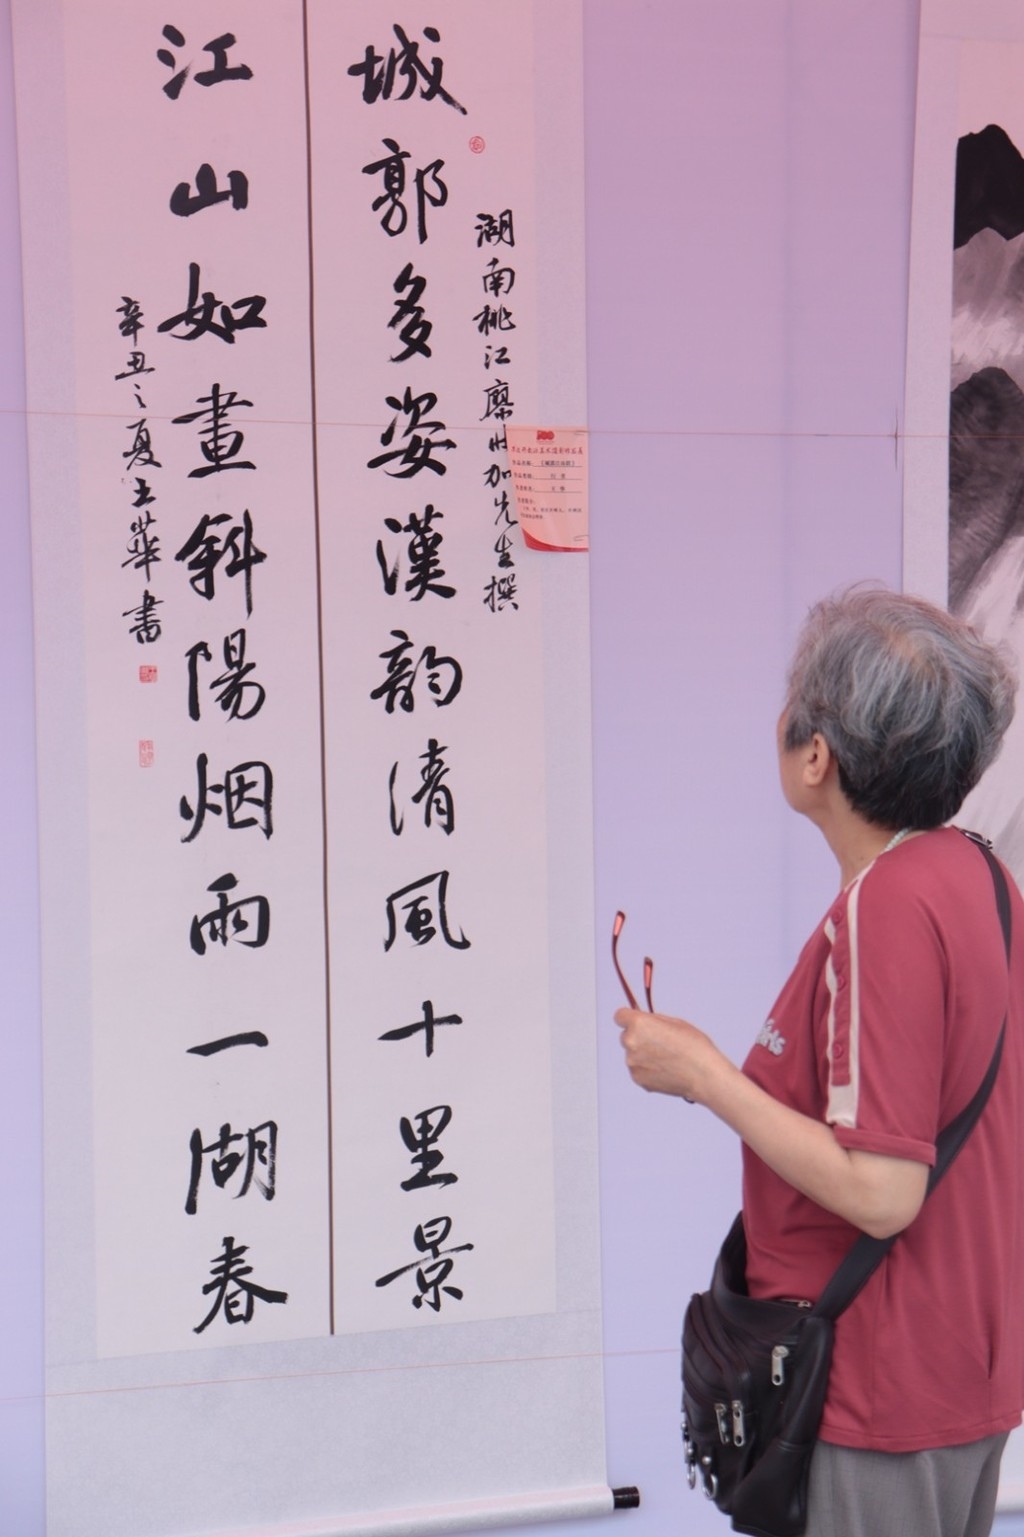 城郭多姿漢韵清風十里景
湖南桃江廖时加先生撰
江山如畫斜陽烟雨一湖春
辛丑之夏士華書